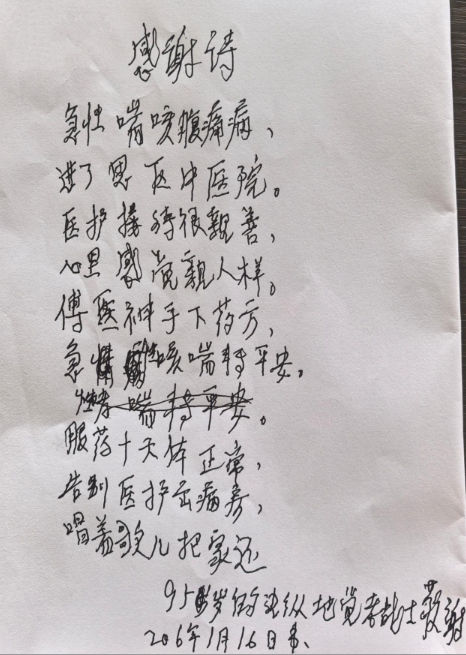 感谢诗
急性喘咳腹痛病，
进了恩医中医院。
医护接待很親善，
心里感觉親人样。
傅医神手下药方，
急性咳喘转平安。
喘转平安。
服药十天体正常，
告别医护出病房，
唱着歌儿把家还
95岁的 纵地党老战士 谢
206年1月16日